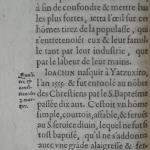 à fin de confondre & mettre bas
les plus fortes, ietta l'œil sur ces
hōmes tirez de la populasse, qui
s'entretenoiēt eux & leur famil-
le tant par leur industrie, que
par le labeur de leur mains.
IOACHIN nasquit à Yatzuxiro,
l'an & fut entoolé au nōbre
des Chrestiens par le S. Baptesme
passée dix ans. C'estoit vn hōme
simple, courtois, affable, & feruēt
au S. seruice diuin, lequel ne fust
tost baptisé, qu'il ne s'addonnast
auec vne gráde alaigresse & fer-